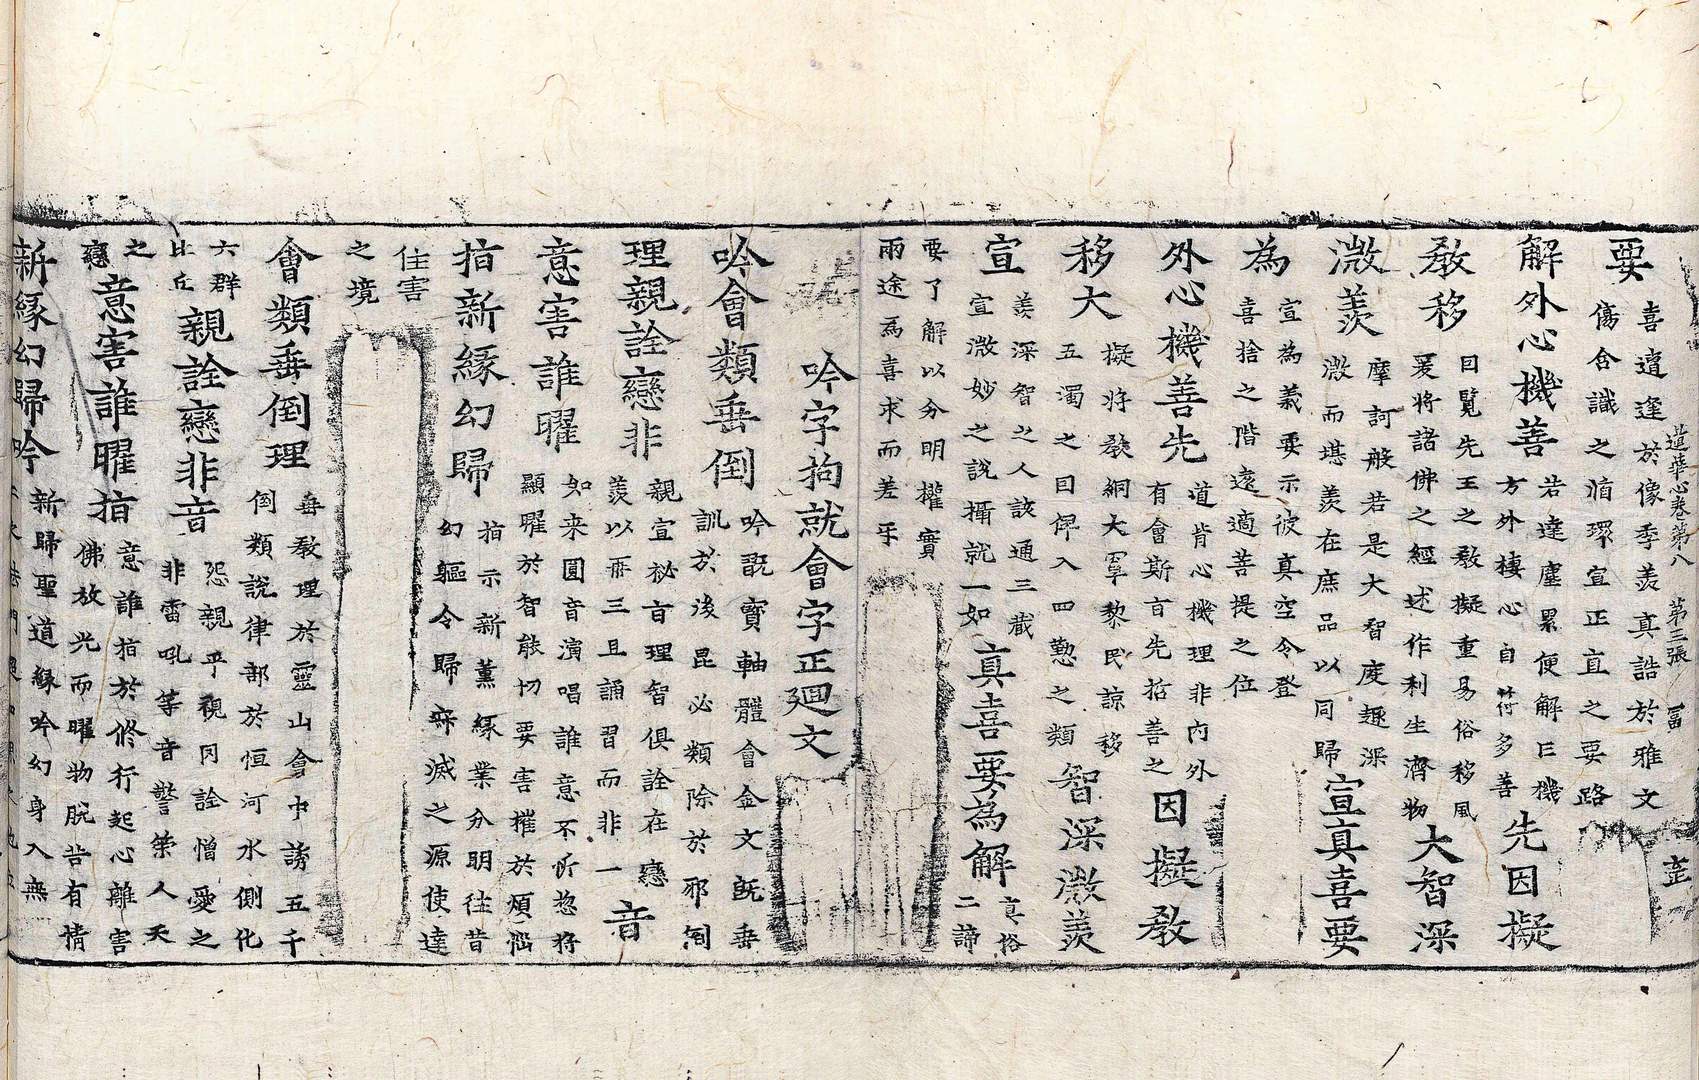 蓮華心卷第八　第三張　冨
要　喜遭逢於像季羨真誥於雅文
傷含識之循環宣正直之要路
解外心機善　若達塵累便解日機
方外棲心自符多善　先因擬
教移　目覽先王之教擬重易俗移風
爰將諸佛之經述作利生濟物　大智深
溦羨　摩訶般若是大智度趣深
溦而堪羨在庶品以同歸　宣真喜要
為　宣為義要示彼真空令登
喜捨之階遠適菩提之位
外心機善先　道肯心機理非内外
有會斯言先拈善之　因擬教
移大　擬將教網大罩黎民諒移
五濁之目俾入四懃之類　智深溦羨
宣　羨深智之人該通三藏
宣溦妙之說攝就一如　真喜要為解　真俗
二諦
要了解以分明權實
兩途為喜求而差乎
吟字拘就會字正廻文
吟會類垂倒　吟翫寶軸體會金文旣垂
訓於後昆必類除於邪倒
理親詮戀非　親宣祕言理智俱詮在戀
羨以再三且誦習而非一　音
意害誰曜　如来圓音演唱誰意不忻忽將
顯曜於智能切要害摧於煩惱
指新緣幻歸　指示新薰緣業分明往昔
幻軀令歸寂滅之源使達
住害
之境
會類垂倒理　垂教理於靈山會中誘五千
倒類說律部於恒河水側化
六群
比丘　親詮戀非音　怨親平視冈詮憎愛之
非雷吼等音警榮人天
之
戀　意害誰曜指　意誰指於修行起心離害
佛放光而曜物脫苦有情
新緣幻歸吟　新歸聖道緣吟幻身入無